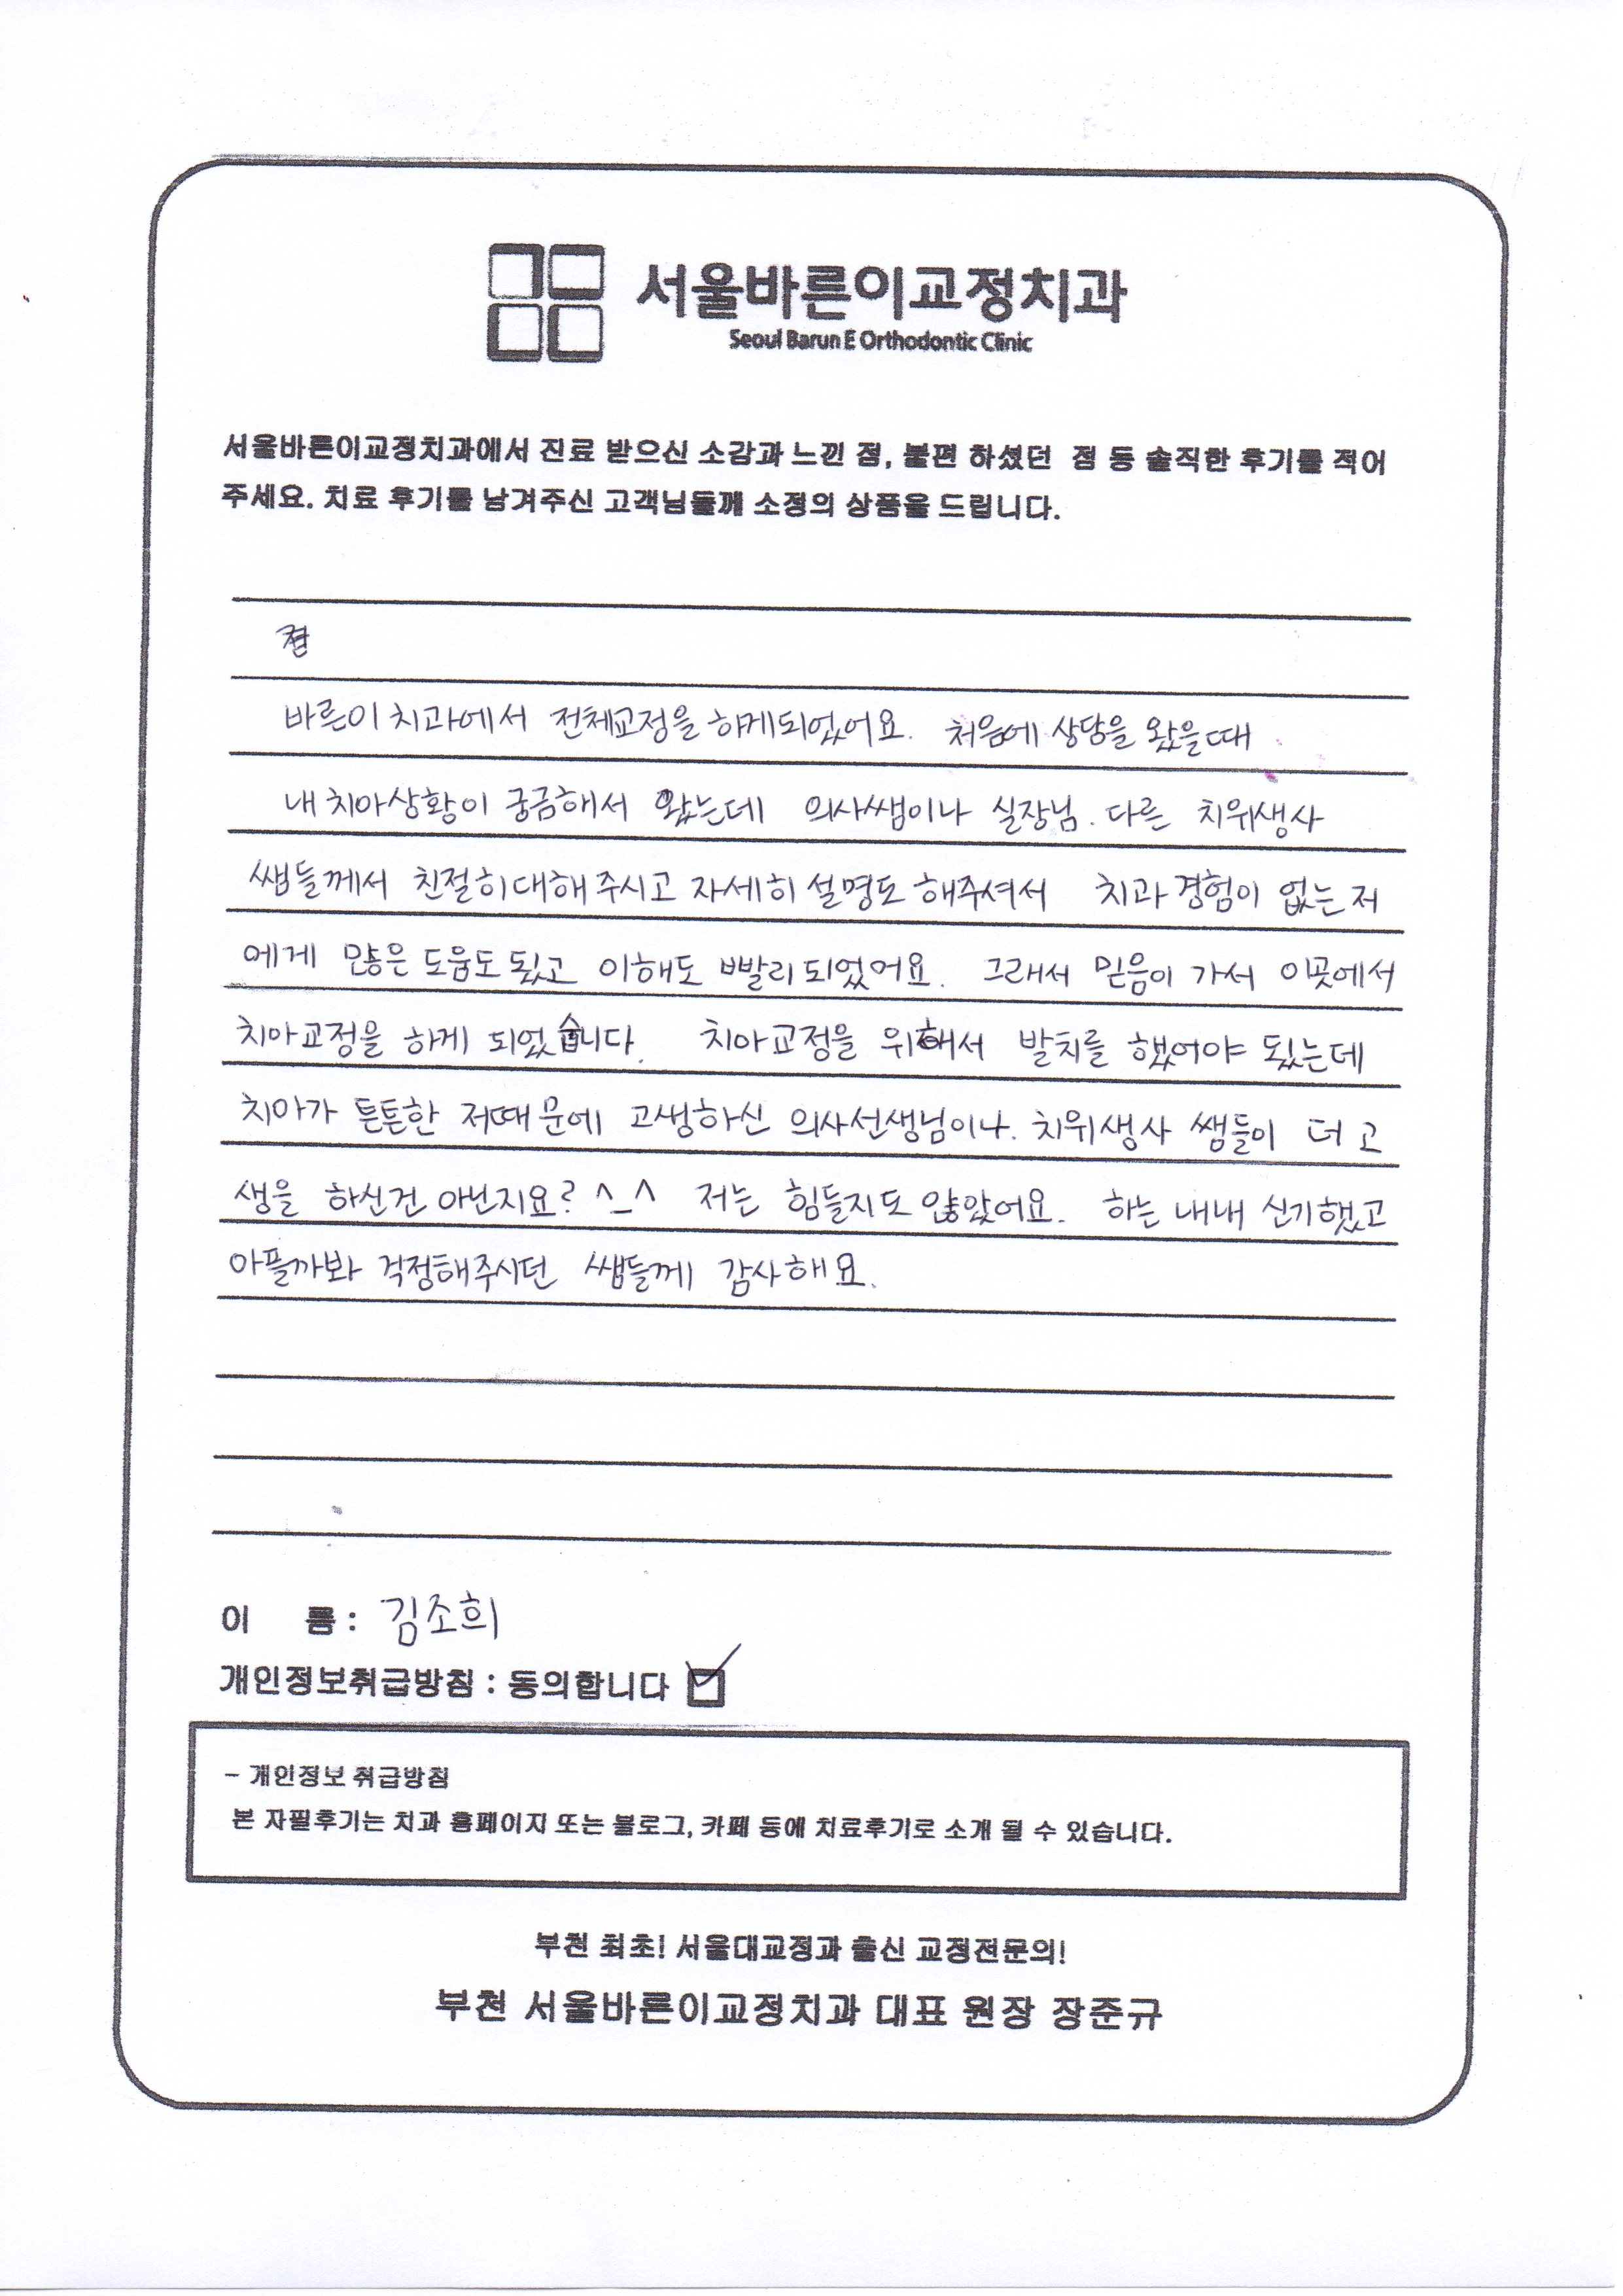 서울바른이교정치과
Seoul Barun E Orthodontic Clinic
서울바른이교정치과에서 진료 받으신 소감과 느낀 점, 불편 하셨던 점 등 솔직한 후기를 적어
주세요. 치료 후기를 남겨주신 고객님들께 소정의 상품을 드립니다.
바른이 치과에서 전체교정을 하게되었어요. 처음에 상담을 왔을때
내 치아상황이 궁금해서 왔는데 의사쌤이나 실장님. 다른 치위생사
쌤들께서 친절히대해 주시고 자세히 설명도 해주셔서 치과 경험이 없는 저
에게 많은 도움도 됬고 이해도 빨리 되었어요. 그래서 믿음이 가서 이곳에서
치아교정을 하게 되었습니다. 치아교정을 위해서 발치를 했어야 됬는데
치아가 튼튼한 저때문에 고생하신 의사선생님이나. 치위생사 쌤들이 더 고
생을 하신건 아닌지요? ^_^ 저는 힘들지도 않았어요. 하는 내내 신기했고
아플까봐 걱정해주시던 쌤들께 감사해요.
이 름 : 김조희
개인정보취급방침 : 동의합니다
- 개인정보 취급방침
본 자필후기는 치과 홈페이지 또는 블로그, 카페 등에 치료후기로 소개 될 수 있습니다.
부천 최초! 서울대교정과 출신 교정전문의!
부천 서울바른이교정치과 대표 원장 장준규